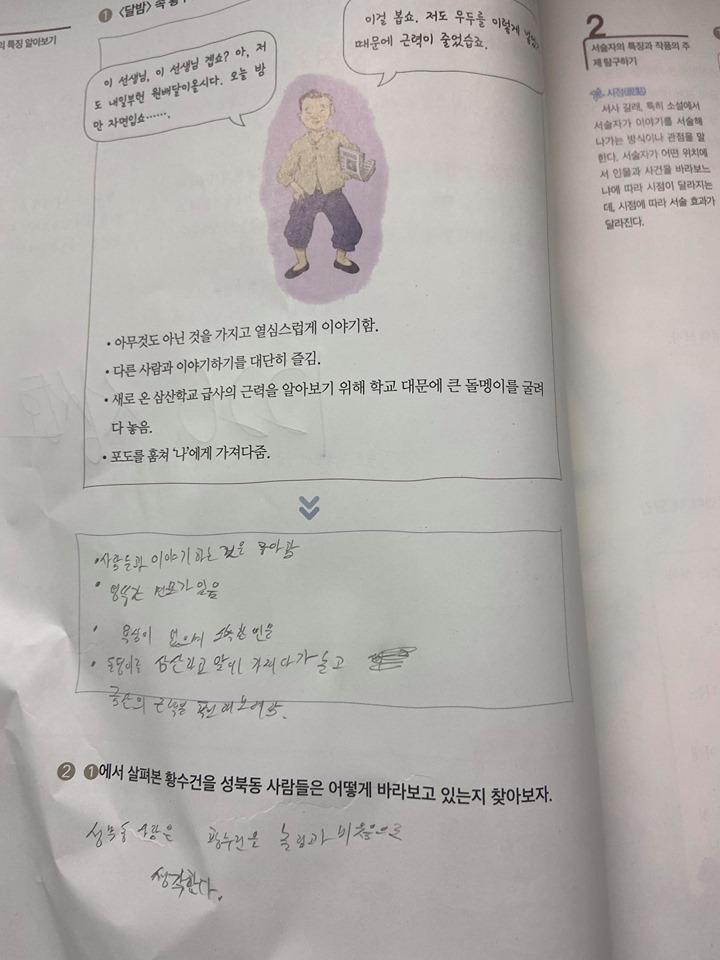 의 특징 알아보기
❶ 〈달밤〉 속 황수
이 선생님, 이 선생님 곕쇼? 아, 저
도 내일부턴 원배달이올시다. 오늘 밤
만 자면입쇼…….
이걸 봅쇼. 저도 우두를 이렇게 넣었
때문에 근력이 줄었습죠.
• 아무것도 아닌 것을 가지고 열심스럽게 이야기함.
• 다른 사람과 이야기하기를 대단히 즐김.
• 새로 온 삼산학교 급사의 근력을 알아보기 위해 학교 대문에 큰 돌멩이를 굴려
다 놓음.
• 포도를 훔쳐 '나'에게 가져다줌.
• 사람들과 이야기 하는 것을 좋아함
• 엉뚱한 면모가 있음
• 욕심이 없으며 소박한 인물
• 돌멩이를 삼산학교 앞에 가져다가 놓고
근력을
❷ ❶에서 살펴본 황수건을 성북동 사람들은 어떻게 바라보고 있는지 찾아보자.
성북동 사람은 황수건을 놀림과 비웃음으로
생각한다.
2
서술자의 특징과 작품의 주
제 탐구하기
시점(視點)
서사 갈래, 특히 소설에서
서술자가 이야기를 서술해
나가는 방식이나 관점을 말
한다. 서술자가 어떤 위치에
서 인물과 사건을 바라보느
냐에 따라 시점이 달라지는
데, 시점에 따라 서술 효과가
달라진다.